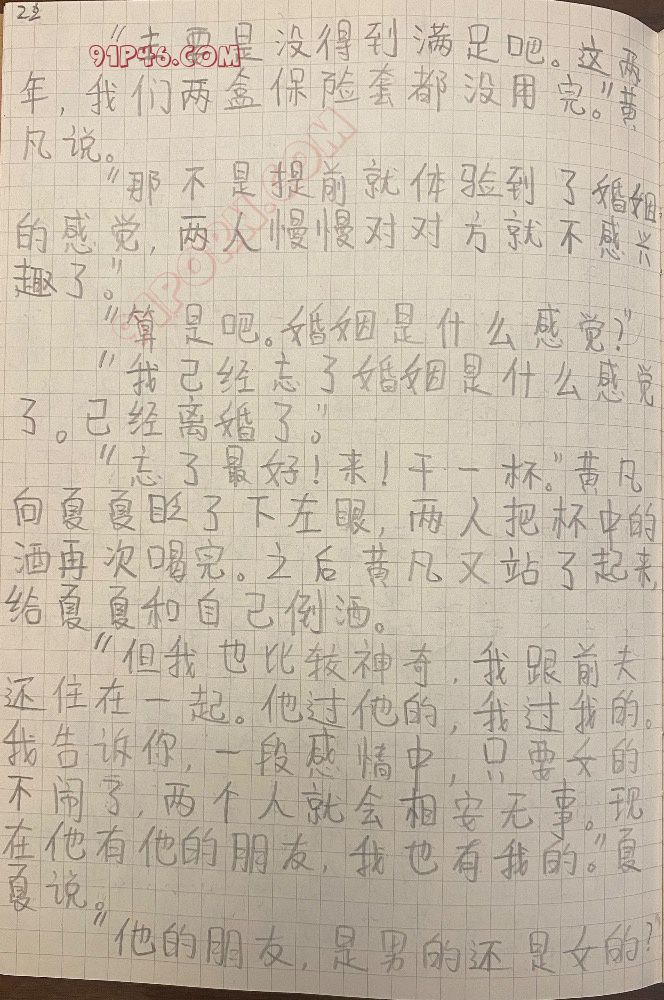 22
"主要是没得到满足吧。这两
91P46.COM
年，我们两盒保险套都没用完。"黄
凡说。
"那不是提前就体验到了婚姻
的感觉，两人慢慢对对方就不感兴
趣了。"
91PORN.COM
"算是吧。婚姻是什么感觉？"
"我已经忘了婚姻是什么感觉
了。已经离婚了。"
"忘了最好！来！干一杯。"黄凡
向夏夏眨了下左眼，两人把杯中的
洒再次喝完。之后黄凡又站了起来，
给夏夏和自己倒洒。
"但我也比较神奇，我跟前夫
还住在一起。他过他的，我过我的。
我告诉你，一段感情中，只要女的
不闹了，两个人就会相安无事。现
在他有他的朋友，我也有我的。"夏
夏说。
"他的朋友，是男的还是女的？"